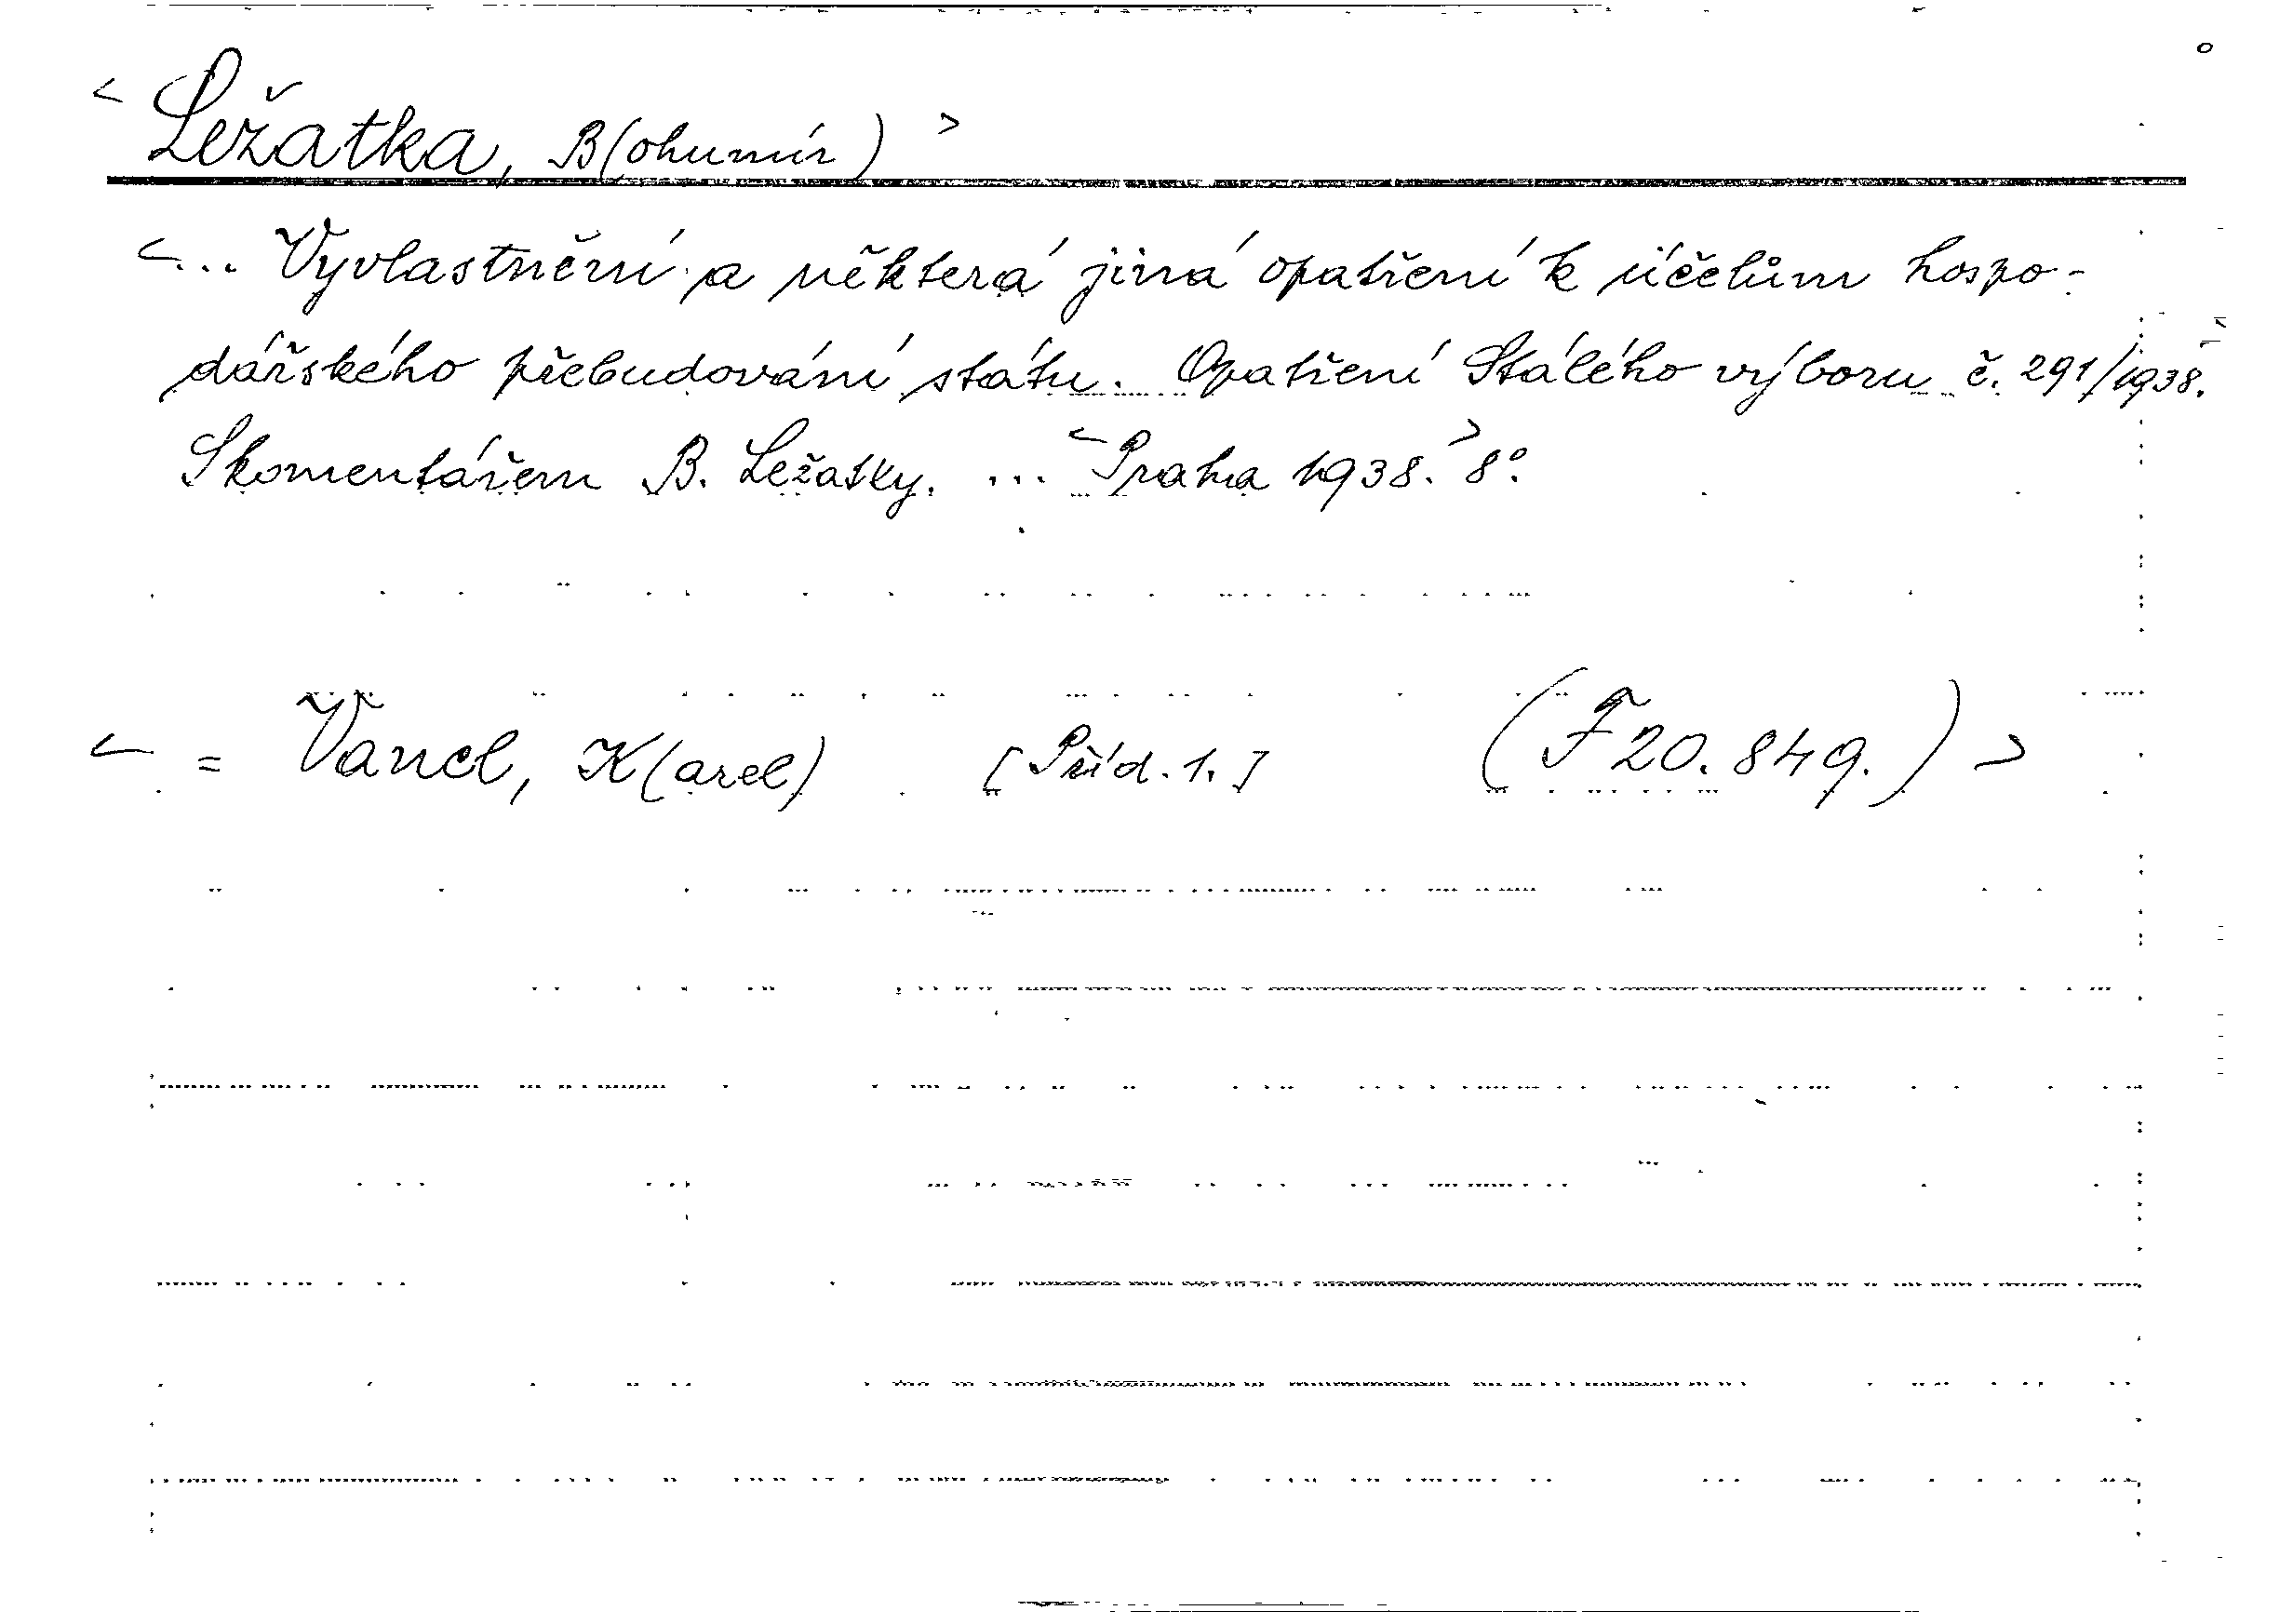 < Ležatka, B(ohumír) >
<... Vyvlastnění a některá jiná opatření k účelům hospo-
dářského přebudování státu. Opatření Stálého výboru č. 291/1938.
S komentářem B. Ležatky. ... <Praha 1938.> 8°.
< = Vancl, K(arel) [Příd. 1.] (F 20.849.) >